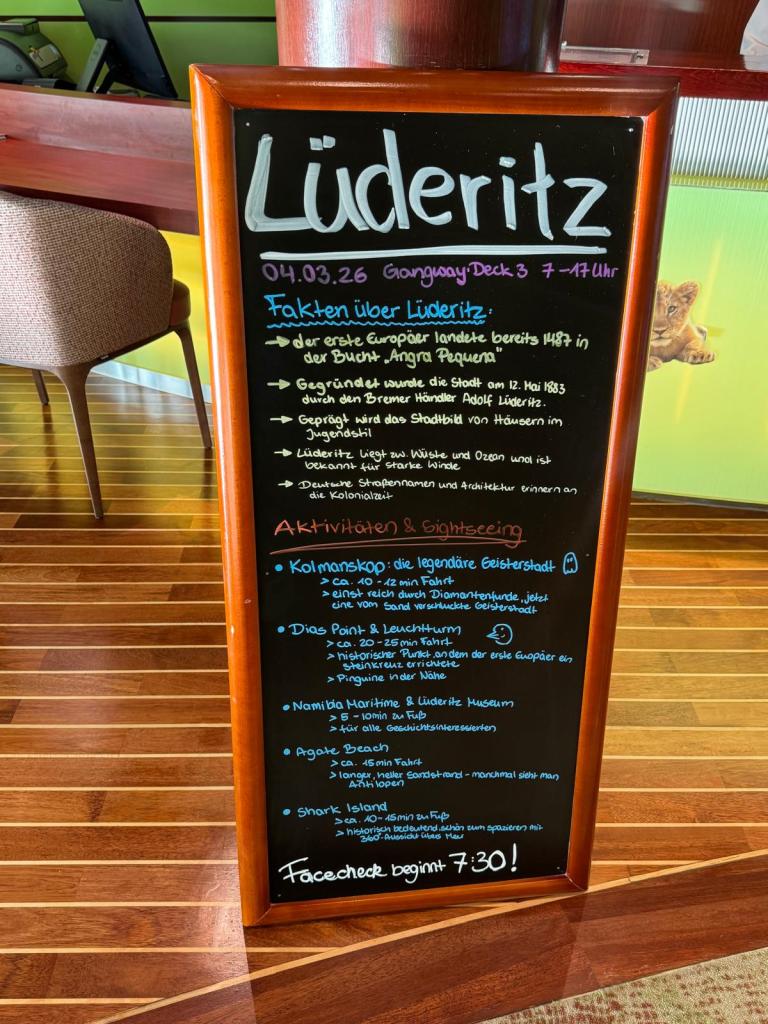 Lüderitz
04.03.26 Gangway: Deck 3 7-17 Uhr
Fakten über Lüderitz:
→ der erste Europäer landete bereits 1487 in
der Bucht „Angra Pequena"
→ Gegründet wurde die Stadt am 12. Mai 1883
durch den Bremer Händler Adolf Lüderitz.
→ Geprägt wird das Stadtbild von Häusern im
Jugendstil
→ Lüderitz liegt zw. Wüste und Ozean und ist
bekannt für starke Winde
→ Deutsche Straßennamen und Architektur erinnern an
die Kolonialzeit
Aktivitäten & Sightseeing
• Kolmanskop: die legendäre Geisterstadt
> ca. 10-12 min Fahrt
> einst reich durch Diamantenfunde, jetzt
eine vom Sand verschluckte Geisterstadt
• Dias Point & Leuchtturm
> ca. 20-25 min Fahrt
> historischer Punkt, an dem der erste Euopäer ein
steinkreuz errichtete
> Pinguine in der Nähe
• Namibia Maritime & Lüderitz Museum
> 5-10 min zu Fuß
> für alle Geschichtsinteressierten
• Agate Beach
> ca. 15 min Fahrt
> langer, heller Sandstrand - manchmal sieht man
Antilopen
• Shark Island
> ca. 10-15 min zu Fuß
> historisch bedeutend, schön zum spazieren mit
360°-Aussicht übers Meer
Facecheck beginnt 7:30!